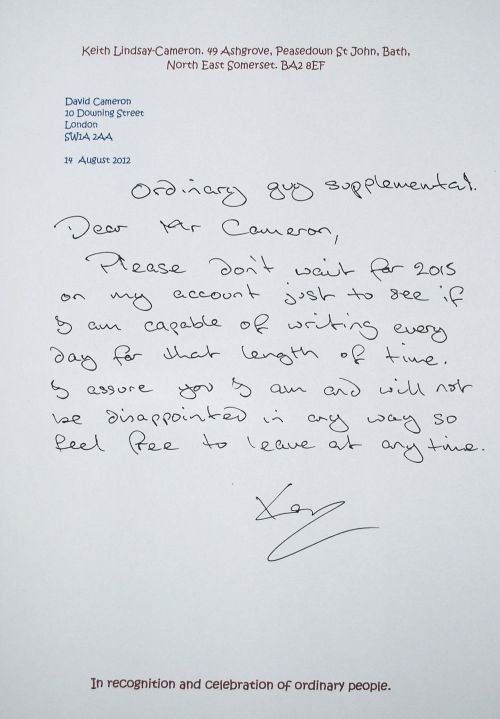 Keith Lindsay-Cameron. 49 Ashgrove, Peasedown St John, Bath,
North East Somerset. BA2 8EF
David Cameron
10 Downing Street
London
SW1A 2AA
14 August 2012
Ordinary guy supplemental.
Dear Mr Cameron,
Please don't wait for 2015
on my account just to see if
I am capable of writing every
day for that length of time.
I assure you I am and will not
be disappointed in any way so
feel free to leave at any time.
In recognition and celebration of ordinary people.